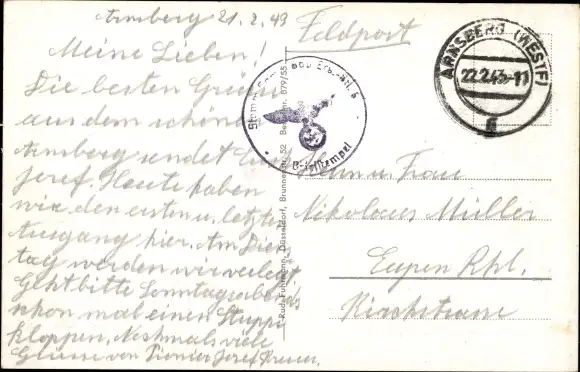 Arnsberg 21.2.43
Feldpost
Meine Lieben!
Die besten Grüße
aus dem schönen
Arnsberg sendet Euch
Josef. Heute haben
wir den ersten u. letzten
Ausgang hier. Am Diens
tag werden wir verlegt.
Geht bitte Sonntagabend
schon mal einen
kloppen. Nochmals viele
Grüsse von Pionier Josef
ARNSBERG (WESTF)
22.2.43-11
Briefstempel
Herrn u. Frau
Nikolaus Müller
Eupen Rhl.
Kirchstrasse
Rud. Fuhrmann, Düsseldorf, Brunnenstr. 52 879/55